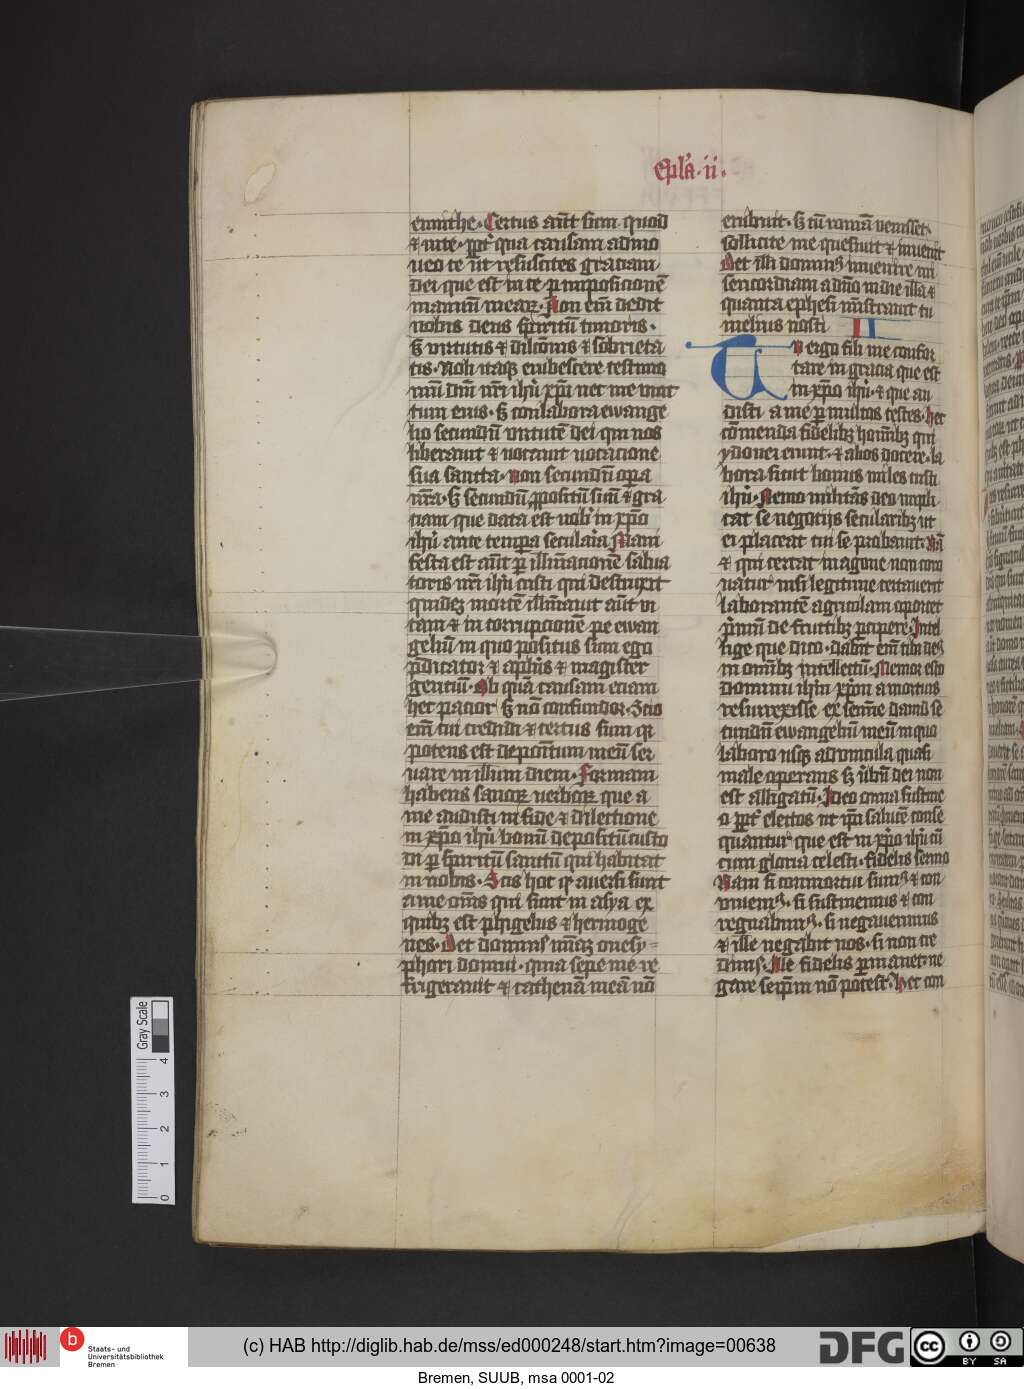 Epl'a · ii ·
eunithe · Certus aūt sum quod
⁊ in te · ꝓpt' quā causam admo
neo te ut resuscites graciam
dei que est in te ꝑ inposicionē
manuū mearꝝ · Non em̄ dedit
nobis deus spiritū timoris ·
sꝫ virtutis ⁊ dilcōnis ⁊ sobrieta
tis · Noli itaqꝫ erubescere testimo
niū dnī nr̄i ih'u xp̄i nec me vinc
tum eius · sꝫ conlabora ewange
lio secundū virtutē dei qui nos
liberauit ⁊ uocauit uocacione
sua sancta · non secundū opa
nr̄a · sꝫ secundū ꝓpositū suū ⁊ gra
ciam que data est nob' in xp̄o
ih'u ante tempa secularia Mani
festa est aūt ꝑ illīnacionē salua
toris nr̄i ih'u cristi qui destruxit
quidez mortē illīnauit aūt vi
tam ⁊ in corrupcionē ꝑ ewan
geliū in quo positus sum ego
p̄dicator ⁊ apl's ⁊ magister
genciū · Ob quā causam eciam
hec pacior sꝫ nō confundor · Scio
em̄ cui credidi ⁊ certus sum qꝛ
potens est depositum meū ser
uare in illum diem · Formam
habens sanorꝝ verborꝝ que a
me audisti in fide ⁊ dilectione
in xp̄o ih'u bonū depositū custo
di ꝑ spiritū sanctū qui habitat
in nobis · Scis hoc qꝛ auersi sunt
a me om̄s qui sunt in asya ex
quibꝫ est phigelus ⁊ hermoge
nes · Det dominus mīaꝫ onesy=
phori domui · quia sepe me re
frigerauit ⁊ cathenā meā nō
erubuit · sꝫ cū romā venisset ·
sollicite me quesiuit ⁊ inuenit
Det illi dominꝰ inuenire mi
sericordiam a dnō in die illa ⁊
quanta ephesi mīstrauit tu
melius nosti II
Tu ergo fili me confor
tare in gracia que est
in xp̄o ih'u · ⁊ que au
disti a me ꝑ multos testes · hec
cōmenda fidelibꝫ hoībꝫ qui
ydonei erunt · ⁊ alios docere · la
bora sicut bonus miles cristi
ih'u · Nemo militās deo impli
cat se negotijs secularibꝫ ut
ei placeat cui se probauit · Nā
⁊ qui certat in agone non coro
natur nisi legitime certauerit
laborantē agricolam oportet
p̄mū de fructibꝫ ꝑcipere · Intel
lige que dico · dabit em̄ tibi deꝰ
in omībꝫ intellectū · Memor esto
dominū ih'm xp̄m a mortuis
resurrexisse ex semīe dauid se
cundū ewangeliū meū in quo
laboro usqꝫ ad vincula quasi
male operans sꝫ ūbū dei non
est alligatū · Ideo omīa sustine
o ꝓpt' electos ut ip̄i salutē conse
quantur que est in xp̄o ih'u cū
cum gloria celesti · fidelis sermo
Nam si conmortui sumꝰ ⁊ con
viuemꝰ · si sustinemus ⁊ con
regnabimꝰ · si negauerimus
⁊ ille negabit nos · si non cre
dimꝰ · Ille fidelis ꝑmanet · ne
gare seip̄m nō potest · hec con
Gray Scale
4
3
2
1
0
b
Staats- und
Universitätsbibliothek
Bremen
(c) HAB http://diglib.hab.de/mss/ed000248/start.htm?image=00638
DFG
cc
BY SA
Bremen, SUUB, msa 0001-02